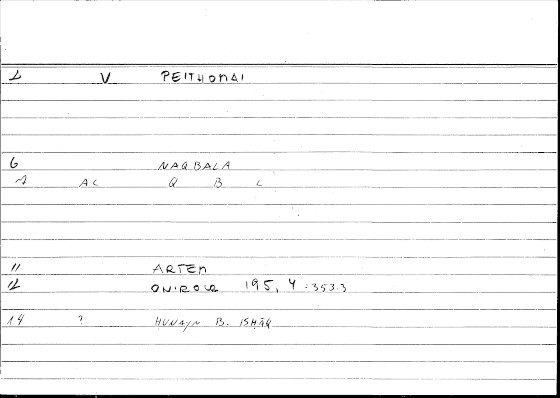 1 V PEITHOMAI
6 NAQBALA
7 AC Q B L
11 ARTEM
12 ONIROCR 195, 4 : 353.3
14 ? HUNAYN B. ISḤĀQ